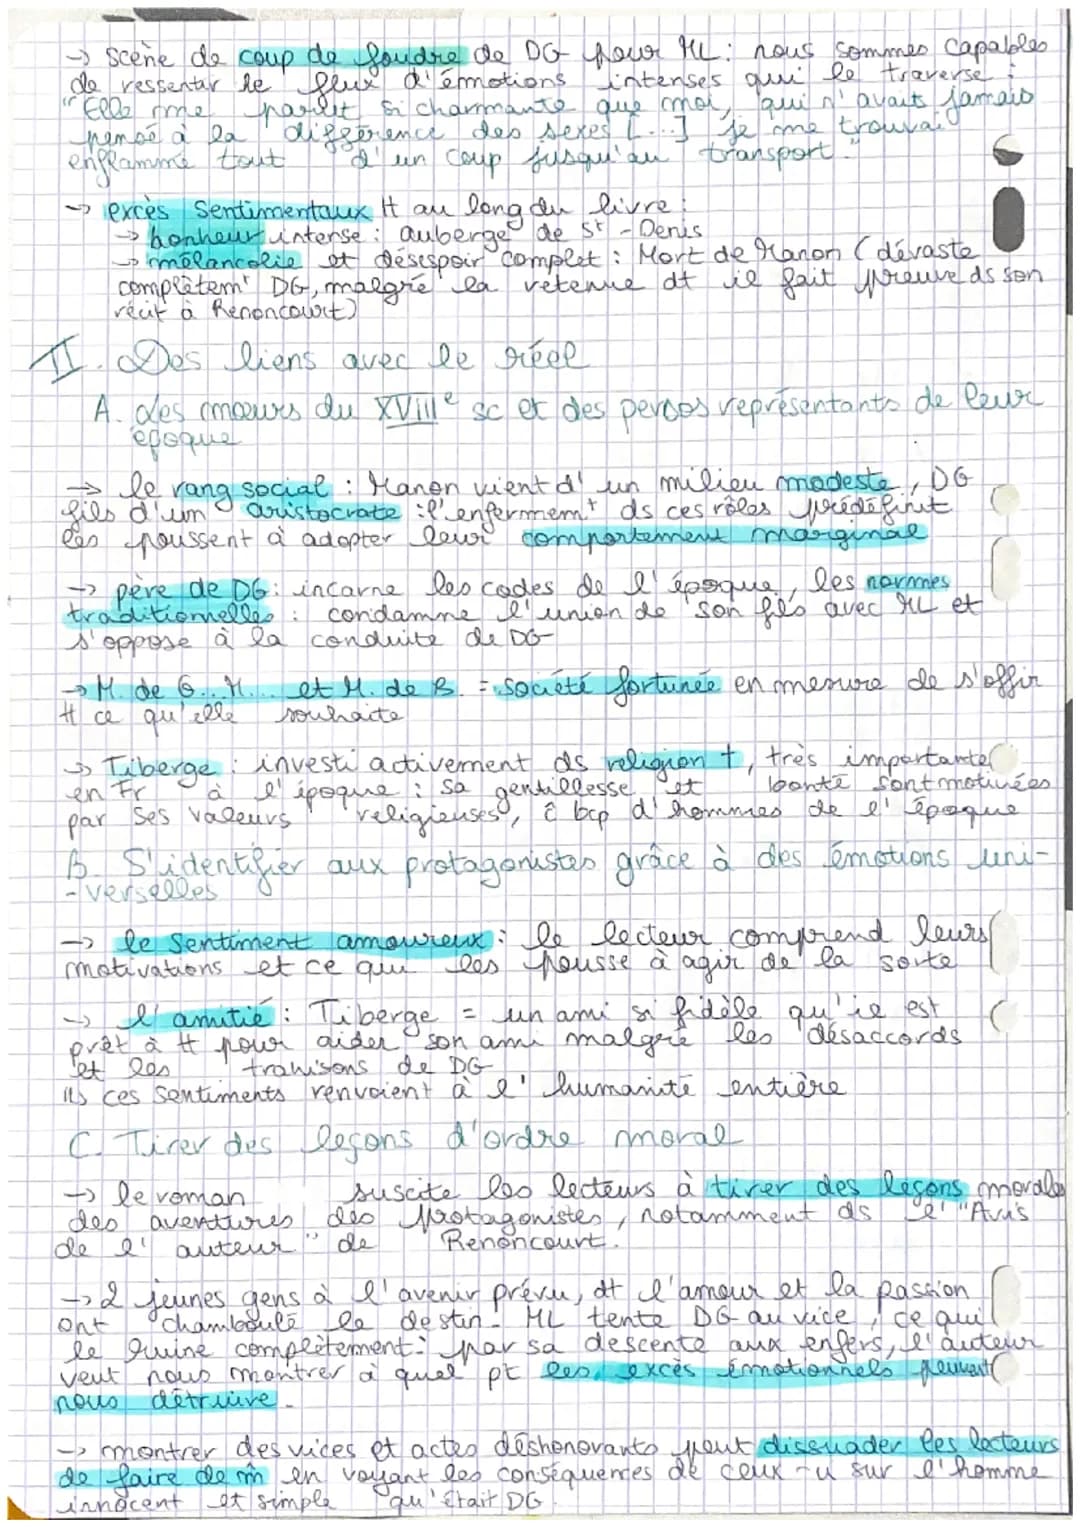 → scène de coup de foudre de DG pour ML : nous sommes capables
de ressentir le flux d'émotions intenses qui le traverse :
"Elle me parut si charmante que moi, qui n'avais jamais
pensé à la différence des sexes [...] je me trouvai
enflammé tout d'un coup jusqu'au transport."
→ excès sentimentaux tt au long du livre :
→ bonheur intense : auberge de St-Denis
→ mélancolie et désespoir complet : Mort de Manon (dévaste
complètemt DG, malgré la retenue dt il fait preuve ds son
récit à Renoncourt)
II. Des liens avec le réel
A. Les mœurs du XVIIIe sc et des persos représentants de leur
époque
→ le rang social : Manon vient d'un milieu modeste, DG
fils d'un aristocrate : l'enfermemt ds ces rôles prédéfinit
les poussent à adopter leur comportement marginal
→ père de DG : incarne les codes de l'époque, les normes
traditionnelles : condamne l'union de son fils avec ML et
s'oppose à la conduite de DG
→ M. de G.. M... et M. de B. = société fortunée en mesure de s'offir
tt ce qu'elle souhaite
→ Tiberge : investi activement ds religion †, très importante
en Fr à l'époque : sa gentillesse et bonté sont motivées
par ses valeurs religieuses, c̄ bcp d'hommes de l'époque
B. S'identifier aux protagonistes grâce à des émotions uni-
-verselles
→ le sentiment amoureux : le lecteur comprend leurs
motivations et ce qui les pousse à agir de la sorte
→ l'amitié : Tiberge = un ami si fidèle qu'il est
prêt à tt pour aider son ami malgré les désaccords
et les trahisons de DG
↳ ces sentiments renvoient à l'humanité entière
C. Tirer des leçons d'ordre moral
→ le roman suscite les lecteurs à tirer des leçons morales
des aventures des protagonistes, notamment ds l'"Avis
de l'auteur" de Renoncourt.
→ 2 jeunes gens à l'avenir prévu, dt l'amour et la passion
ont chamboulé le destin. ML tente DG au vice, ce qui
le ruine complètement : par sa descente aux enfers, l'auteur
veut nous montrer à quel pt les excès émotionnels peuvent
nous détruire.
→ montrer des vices et actes déshonorants peut dissuader les lecteurs
de faire de m̂ en voyant les conséquences de ceux-ci sur l'homme
innocent et simple qu'était DG.